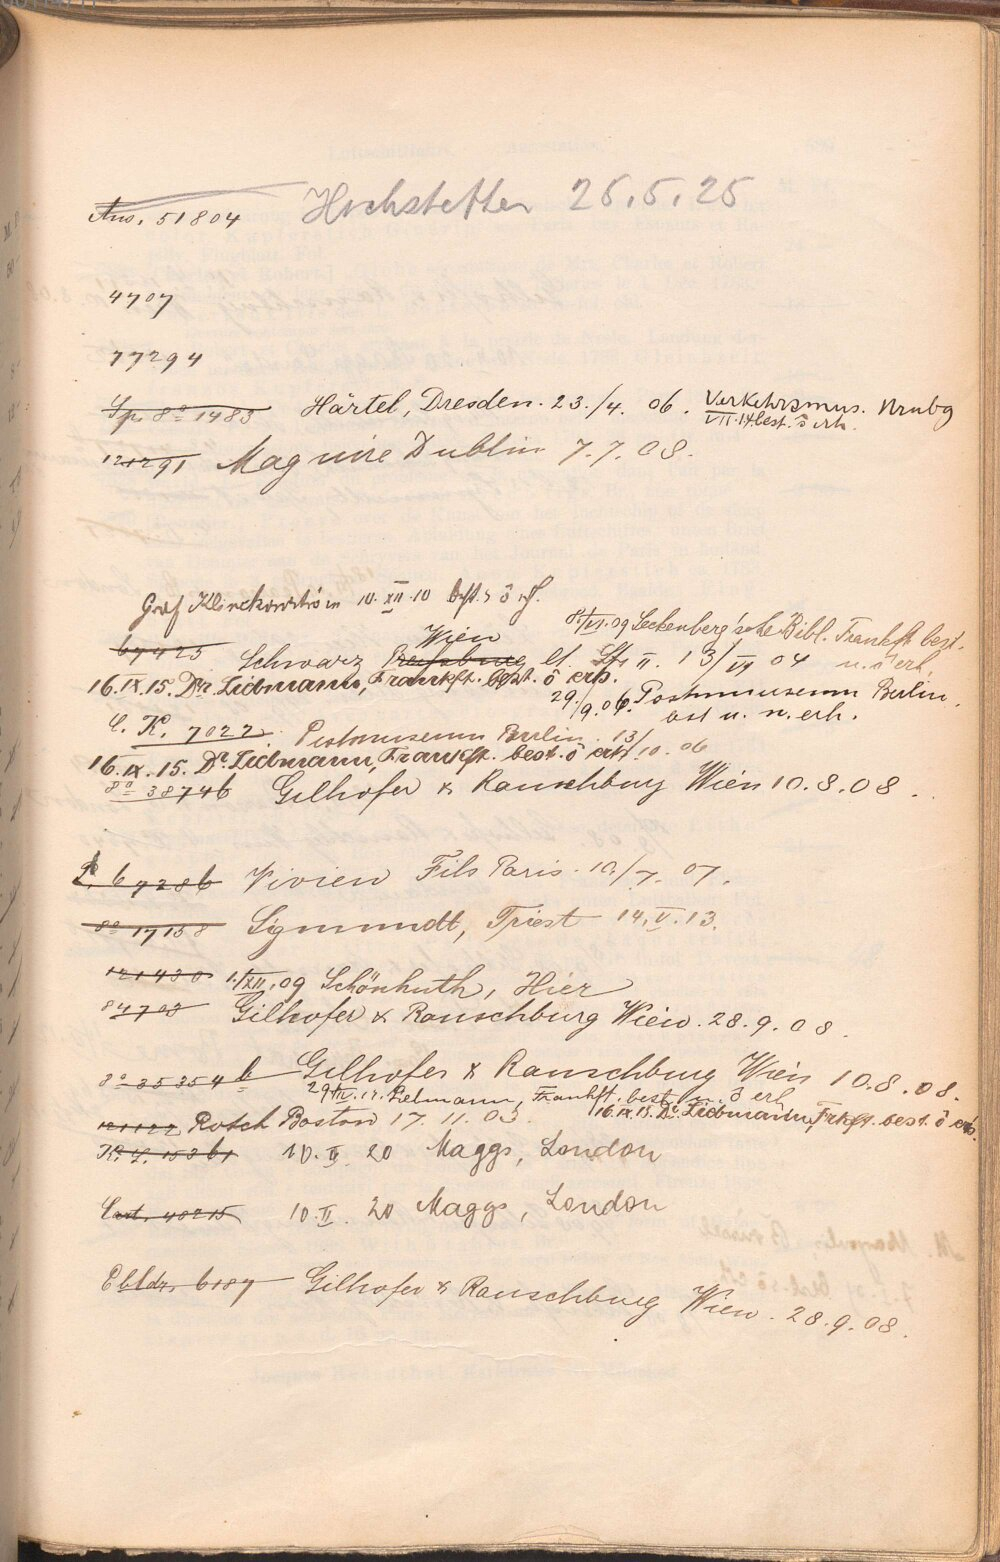 Ans. 51804 Hochstetter 25.5.25
4707
77294
Sp. 8° 1483 Härtel, Dresden. 23./4. 06. Verkehrsmus. Nrnbg
VII.14 best. ō erh.
121291 Maguire Dublin 7.7.08.
Graf Klinckowström 10.XII.10 best. ō erh.
8./VI.09 Senkenberg'sche Bibl. Frankft best.
Wien
67425 Schwarz Pressburg II. 13/VI 04 u. ō erh.
16.IX.15. Dr. Liebmann, Frankft. best. ō erh.
29./9.06. Postmuseum Berlin.
best u. n. erh.
C. K. 7022 Postmuseum Berlin. 13/10.06
16.IX.15. Dr. Liebmann, Frankft. best. ō erh.
8° 38746 Gilhofer & Ranschburg Wien 10.8.08.
P. 67286 Vivien Fils Paris. 10./7. 07.
8° 17158 Sigmundt, Triest 14.V.13.
121430 1./XII.09 Schönhuth, Hier
84703 Gilhofer & Ranschburg Wien. 28.9.08.
8° 35354 b Gilhofer & Ranschburg Wien 10.8.08.
Liebmann, Frankft. best. u. ō erh
16.IX.15. Dr. Liebmann, Frkft. best. ō erh.
121122 Rotch Boston 17.11.03.
K. S. 15361 10.II. 20 Maggs, London
Cart. 40215 10.II. 20 Maggs, London
Ebldr. 6187 Gilhofer & Ranschburg Wien. 28.9.08.